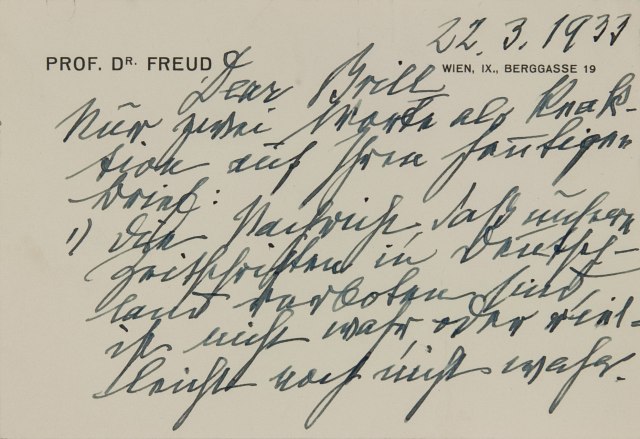 22. 3. 1933
PROF. DR. FREUD
WIEN, IX., BERGGASSE 19
Dear Brill
Nur zwei Worte als Reak-
tion auf Ihren heutigen
Brief:
1) Die Nachricht, daß unsere
Zeitschriften in Deutsch-
land verboten sind,
ist nicht wahr oder viel-
leicht noch nicht wahr.